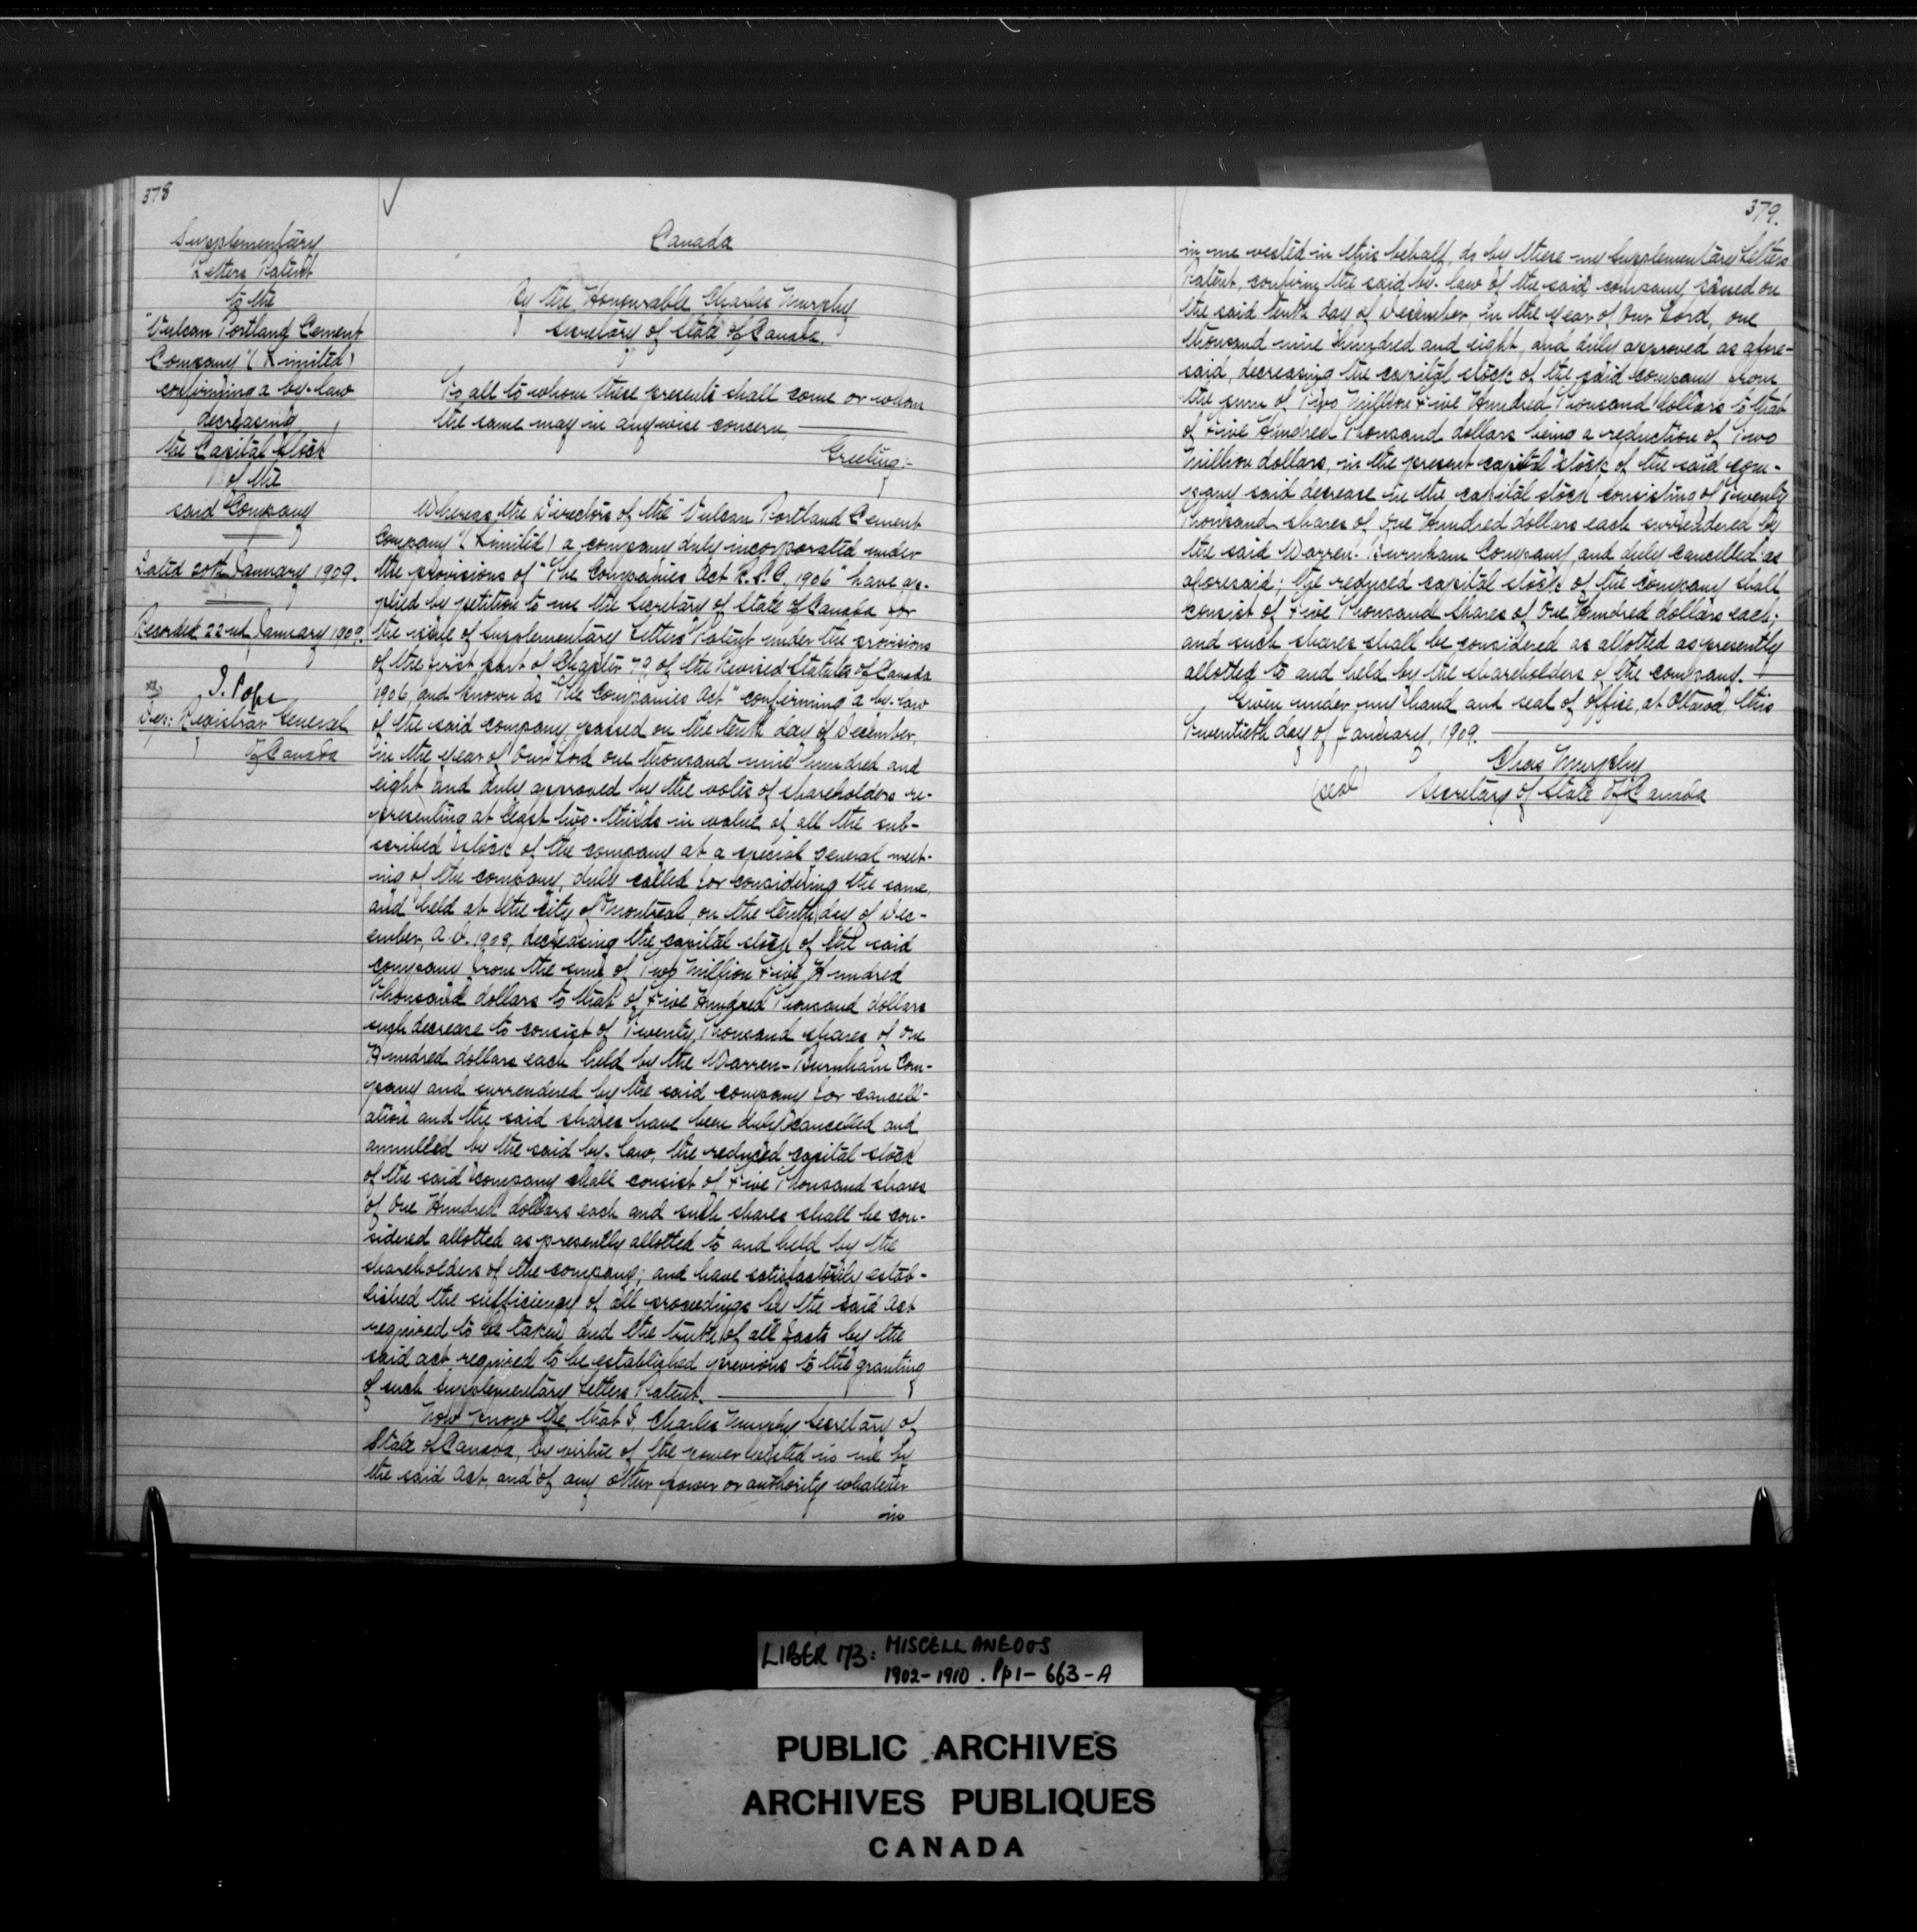 378
Supplementary
Letters Patent
to the
"Vulcan Portland Cement
Company" (Limited)
confirming a by-law
decreasing
the Capital Stock
of the
said Company
Dated 20th January 1909.
Recorded 22nd January 1909.
J. Pope
Dep: Registrar General
of Canada
Canada
By the Honourable Charles Murphy
Secretary of State of Canada.
To all to whom these presents shall come or whom
the same may in anywise concern,
Greeting:-
Whereas the Directors of the "Vulcan Portland Cement
Company" (Limited) a company duly incorporated under
the provisions of "The Companies Act R.S.C. 1906" have ap-
plied by petition to me the Secretary of State of Canada for
the issue of Supplementary Letters Patent under the provisions
of the first part of Chapter 79, of the Revised Statutes of Canada
1906, and known as "The Companies Act" confirming a by-law
of the said company, passed on the tenth day of December,
in the year of Our Lord one thousand nine hundred and
eight and duly approved by the votes of shareholders re-
presenting at least two-thirds in value of all the sub-
scribed stock of the company at a special general meet-
ing of the company, duly called for considering the same,
and held at the city of Montreal, on the tenth day of Dec-
ember, A.D. 1908, decreasing the capital stock of the said
company from the sum of Two Million Five Hundred
Thousand dollars to that of Five Hundred Thousand dollars
such decrease to consist of Twenty Thousand shares of One
Hundred dollars each held by the Warren-Burnham Com-
pany and surrendered by the said company for cancell-
ation and the said shares have been duly cancelled and
annulled by the said by-law, the reduced capital stock
of the said company shall consist of Five Thousand shares
of One Hundred dollars each and such shares shall be con-
sidered allotted as presently allotted to and held by the
shareholders of the company; and have satisfactorily estab-
lished the sufficiency of all proceedings by the said Act
required to be taken and the truth of all facts by the
said act required to be established previous to the granting
of such Supplementary Letters Patent.
Now Know Ye, that I, Charles Murphy, Secretary of
State of Canada, by virtue of the power vested in me by
the said Act, and of any other power or authority whatever
in
379.
in me vested in this behalf, do by these my Supplementary Letters
Patent, confirm the said by-law of the said company, passed on
the said tenth day of December, in the year of Our Lord, one
thousand nine hundred and eight, and duly approved as afore-
said, decreasing the capital stock of the said company from
the sum of Two Million Five Hundred Thousand dollars to that
of Five Hundred Thousand dollars being a reduction of Two
Million dollars, in the present capital stock of the said com-
pany said decrease in the capital stock consisting of Twenty
Thousand shares of One Hundred dollars each surrendered by
the said Warren-Burnham Company, and duly cancelled as
aforesaid; the reduced capital stock of the company shall
consist of Five Thousand shares of One Hundred dollars each;
and such shares shall be considered as allotted as presently
allotted to and held by the shareholders of the company.
Given under my hand and seal of office, at Ottawa, this
Twentieth day of January, 1909.
Chas Murphy
(seal) Secretary of State of Canada
LIBER 173: MISCELLANEOUS
1902-1910. Pp1-663-A
PUBLIC ARCHIVES
ARCHIVES PUBLIQUES
CANADA